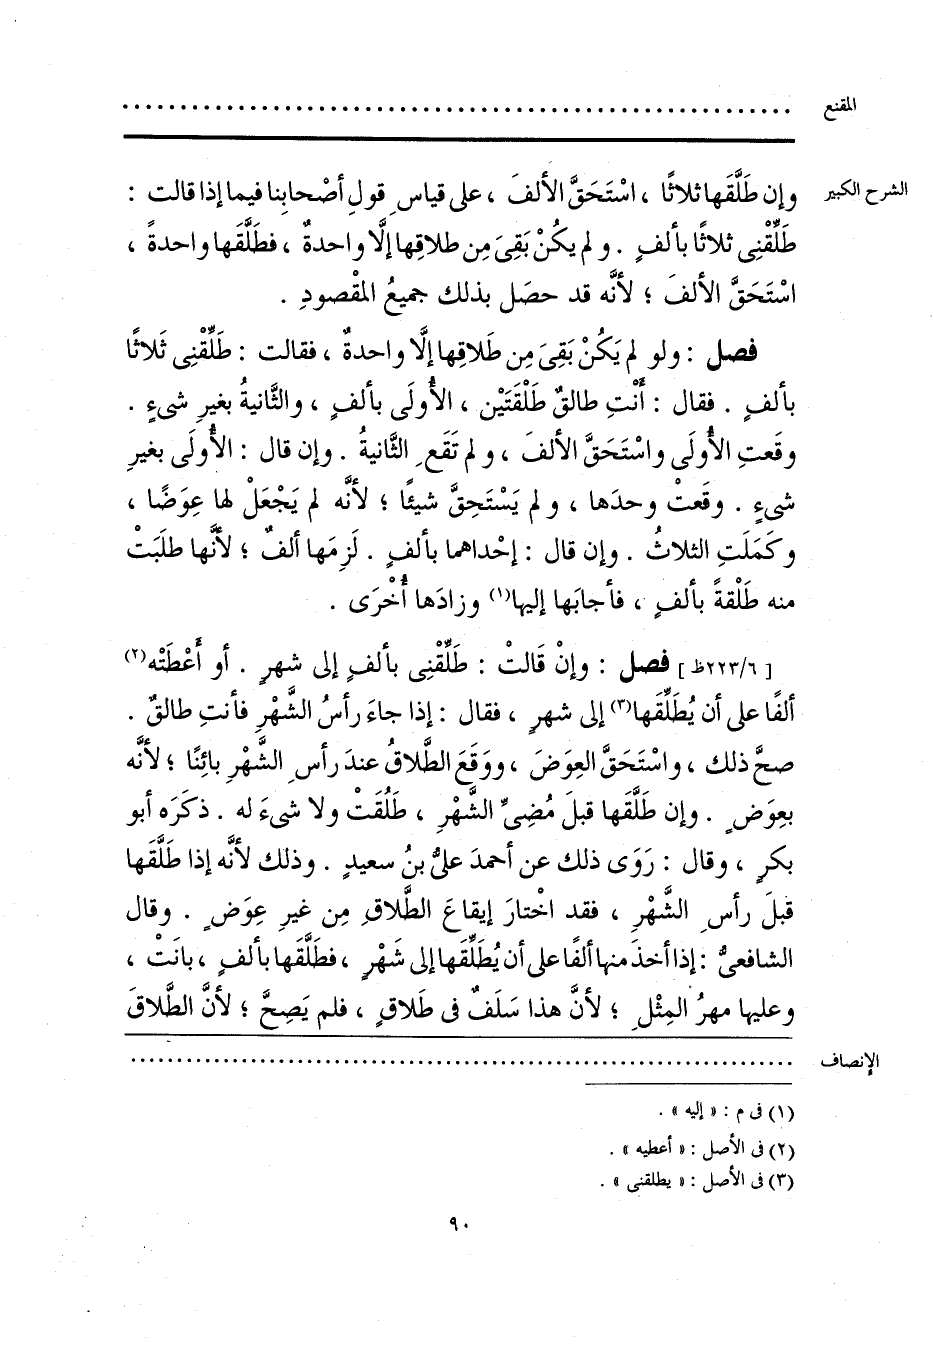 المقنع ........................................................
الشرح الكبير
وإن طَلَّقَها ثلاثًا ، اسْتَحَقَّ الألفَ ، على قياسِ قولِ أصْحابِنا فيما إذا قالت :
طَلِّقْنِى ثلاثًا بألفٍ . ولم يكنْ بَقِىَ مِن طلاقِها إلَّا واحدةٌ ، فطلَّقَها واحدةً ،
اسْتَحَقَّ الألفَ ؛ لأنَّه قد حصَل بذلك جميعُ المقْصودِ .
فصل : ولو لم يَكُنْ بَقِىَ مِن طَلاقِها إلَّا واحدةٌ ، فقالت : طَلِّقْنِى ثَلاثًا
بألفٍ . فقال : أَنْتِ طالقٌ طَلْقَتَيْن ، الأُولَى بألفٍ ، والثَّانيةُ بغيرِ شىءٍ .
وقَعتِ الأُولَى واسْتَحَقَّ الألفَ ، ولم تَقَعِ الثَّانيةُ . وإن قال : الأُولَى بغيرِ
شىءٍ . وقَعتْ وحدَها ، ولم يَسْتَحِقَّ شيئًا ؛ لأنَّه لم يَجْعَلْ لها عِوَضًا ،
وكَمَلَتِ الثلاثُ . وإن قال : إحْداهما بألفٍ . لَزِمَها ألفٌ ؛ لأنَّها طلَبَتْ
منه طَلْقةً بألفٍ ، فأجابَها إليها(١) وزادَها أُخْرَى .
[ ٢٢٣/٦ظ ] فصل : وإنْ قَالتْ : طَلِّقْنِى بألفٍ إلى شهرٍ . أو أَعْطَتْه(٢)
ألفًا على أن يُطَلِّقَها(٣) إلى شهرٍ ، فقال : إذا جاءَ رأسُ الشَّهْرِ فأنتِ طالقٌ .
صحَّ ذلك ، واسْتَحَقَّ العِوَضَ ، ووَقَعَ الطَّلاقُ عندَ رأسِ الشَّهْرِ بائِنًا ؛ لأنَّه
بعِوَضٍ . وإن طَلَّقَها قبلَ مُضِىِّ الشَّهْرِ ، طَلُقَتْ ولا شىءَ له . ذكَرَه أبو
بكرٍ ، وقال : رَوَى ذلك عن أحمدَ علىُّ بنُ سعيدٍ . وذلك لأنَّه إذا طَلَّقَها
قبلَ رأسِ الشَّهْرِ ، فقد اخْتارَ إيقاعَ الطَّلاقِ مِن غيرِ عِوَضٍ . وقال
الشافعىُّ : إذا أخذَ منها ألفًا على أن يُطَلِّقَها إلى شَهْرٍ ، فطَلَّقَها بألفٍ ، بانَتْ ،
وعليها مهرُ المِثْلِ ؛ لأنَّ هذا سَلَفٌ فى طَلاقٍ ، فلم يَصِحَّ ؛ لأنَّ الطَّلاقَ
الإنصاف ........................................................
(١) فى م : « إليه » .
(٢) فى الأصل : « أعطيه » .
(٣) فى الأصل : « يطلقنى » .
٩٠